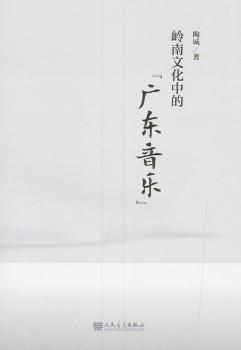 陶诚/著
岭南文化中的
『广东音乐』
人民音乐出版社